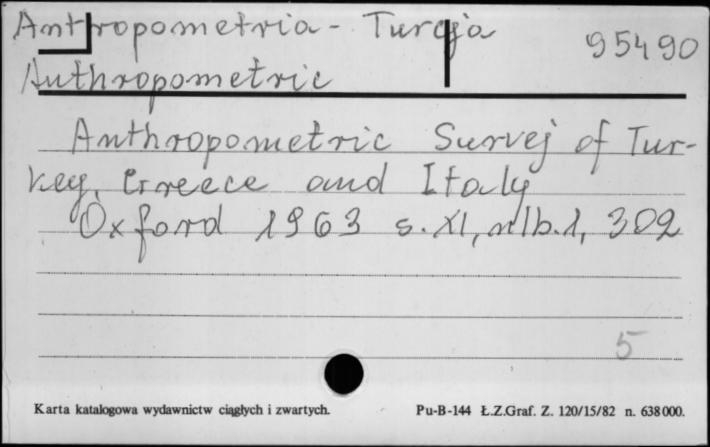 Antropometria - Turcja
95490
Anthropometric
Anthropometric Survej of Tur-
key, Greece and Italy
Oxford 1963 s. XI, nlb. 1, 302
5
Karta katalogowa wydawnictw ciągłych i zwartych. Pu-B-144 Ł.Z.Graf. Z. 120/15/82 n. 638000.